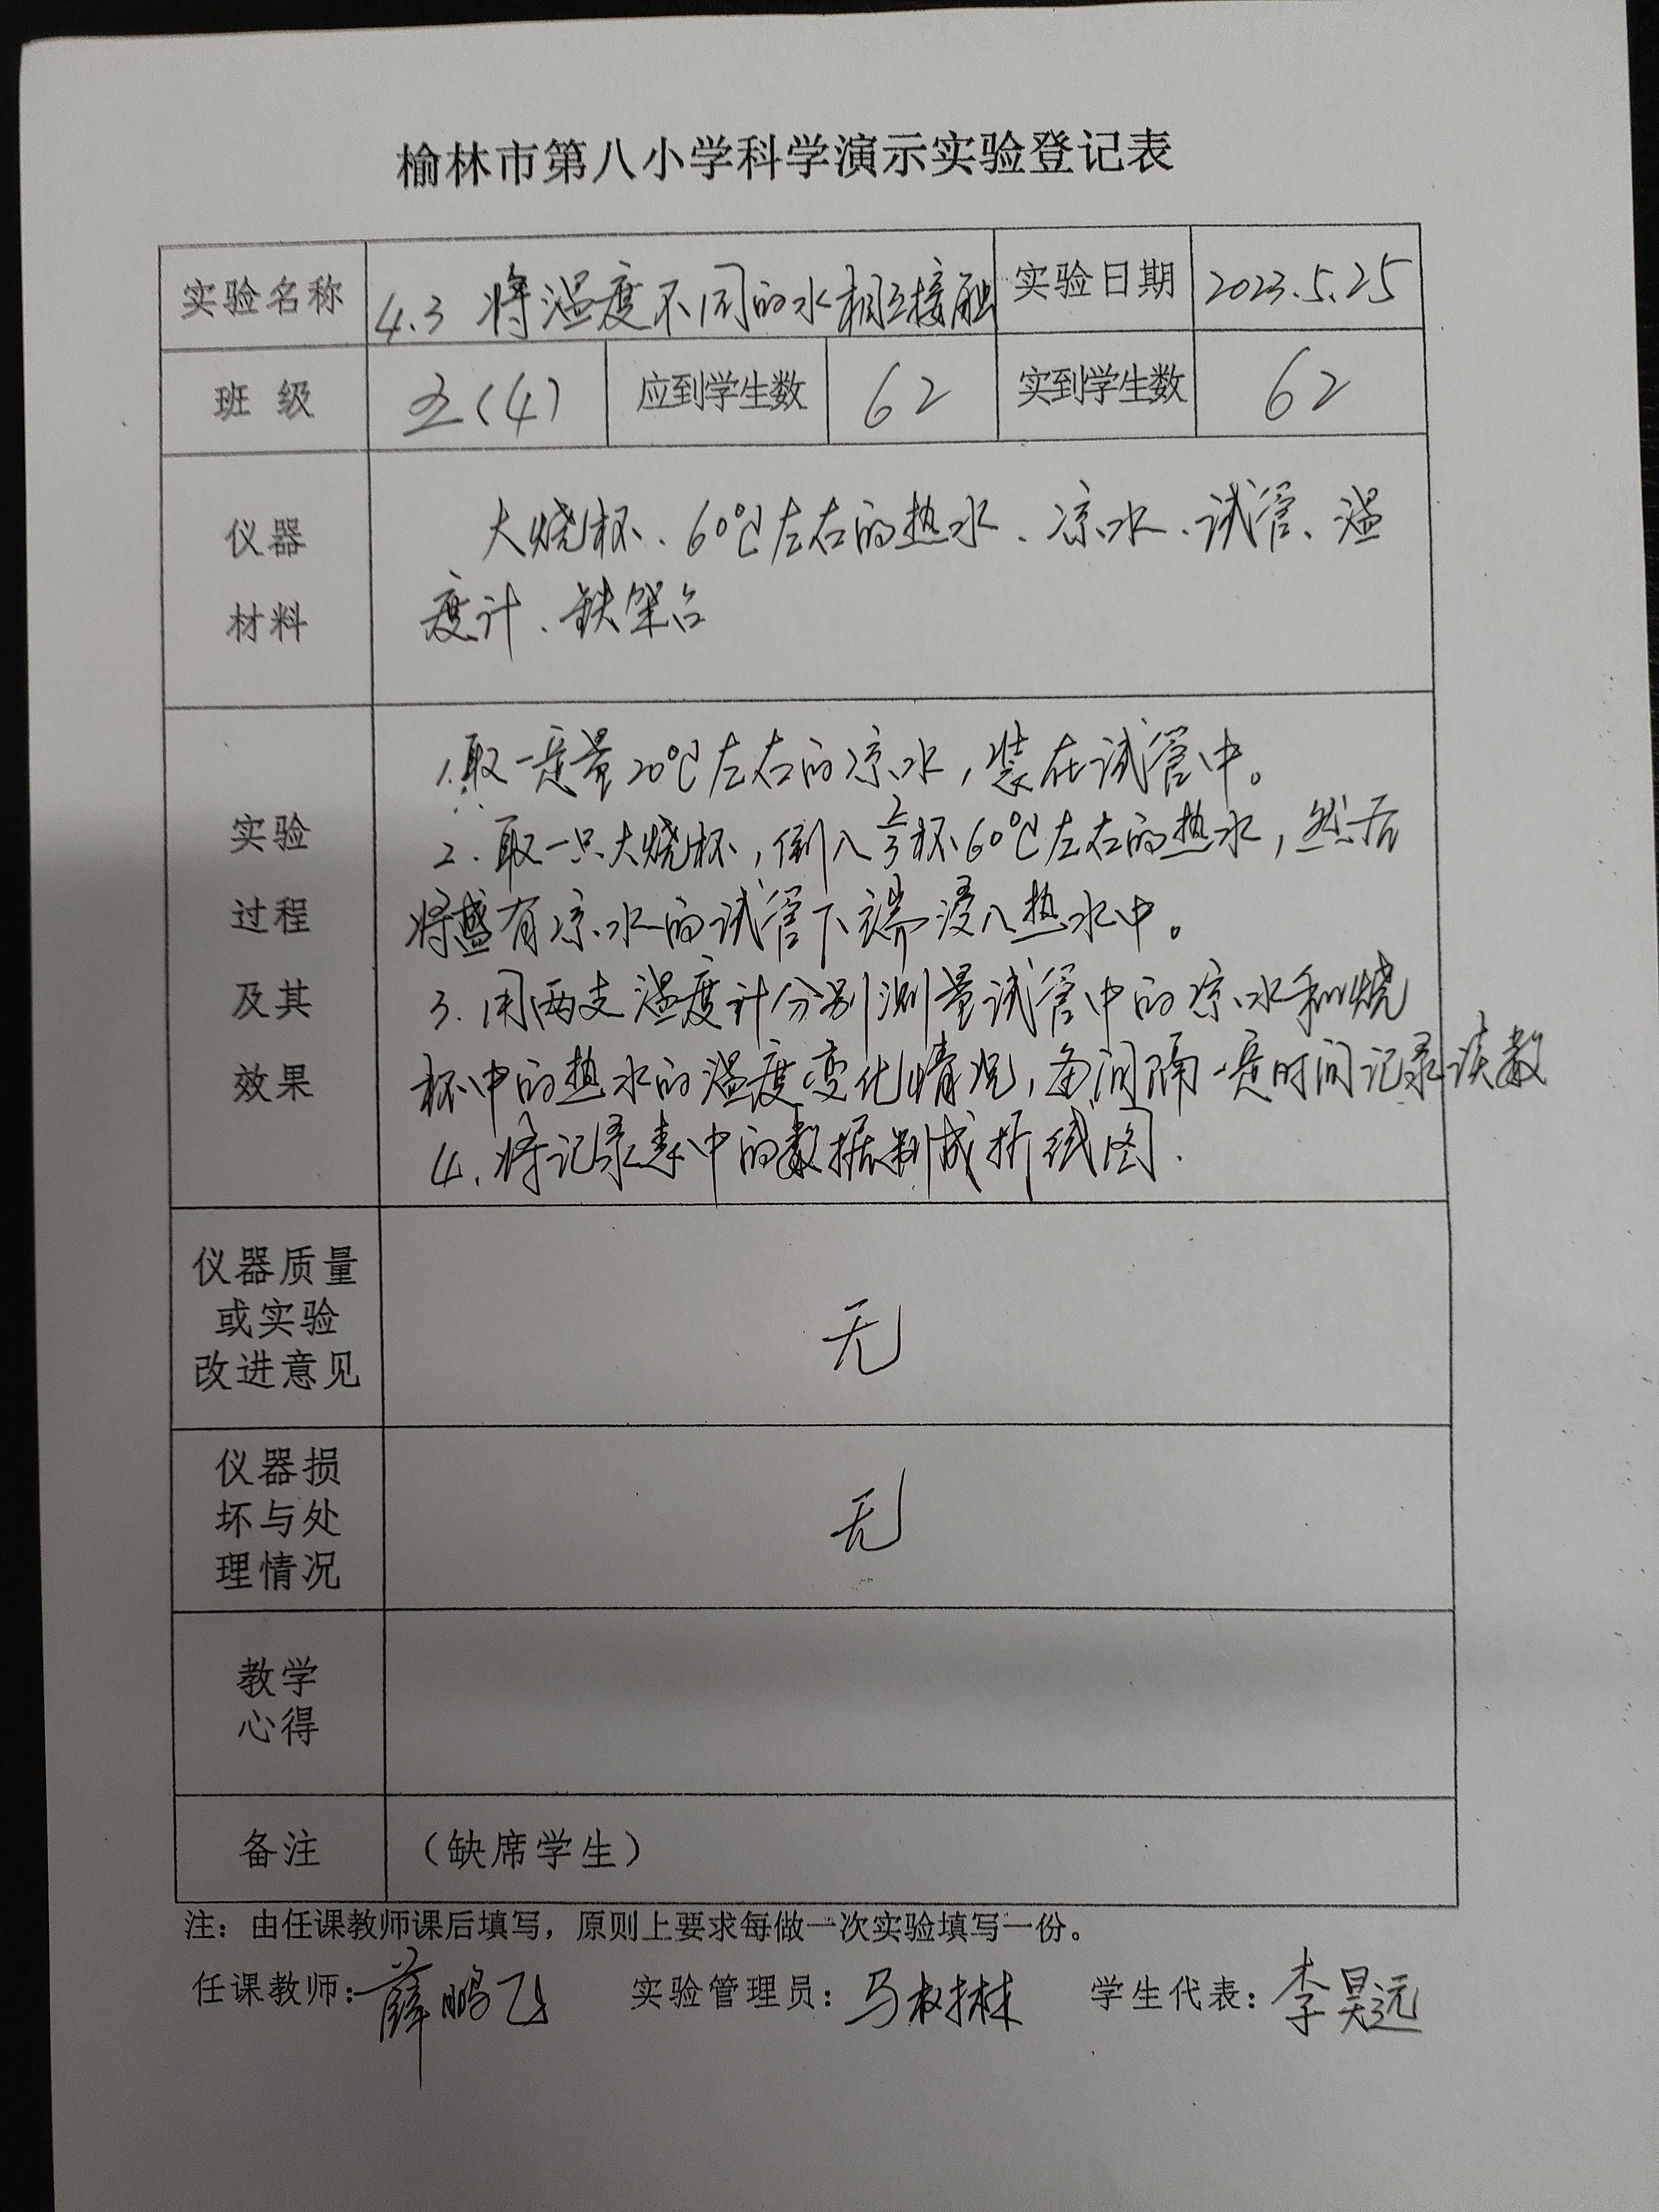 榆林市第八小学科学演示实验登记表
实验名称 4.3 将温度不同的水相互接触 实验日期 2023.5.25
班 级 五(4) 应到学生数 62 实到学生数 62
仪器
材料
大烧杯、60℃左右的热水、凉水、试管、温
度计、铁架台
实验
过程
及其
效果
1.取一定量20℃左右的凉水，装在试管中。
2.取一只大烧杯，倒入2/3杯60℃左右的热水，然后
将盛有凉水的试管下端浸入热水中。
3.用两支温度计分别测量试管中的凉水和烧
杯中的热水的温度变化情况，每间隔一定时间记录读数
4.将记录表中的数据制成折线图.
仪器质量
或实验
改进意见
无
仪器损
坏与处
理情况
无
教学
心得
备注 （缺席学生）
注：由任课教师课后填写，原则上要求每做一次实验填写一份。
任课教师：薛鹏飞 实验管理员：马树林 学生代表：李昊远